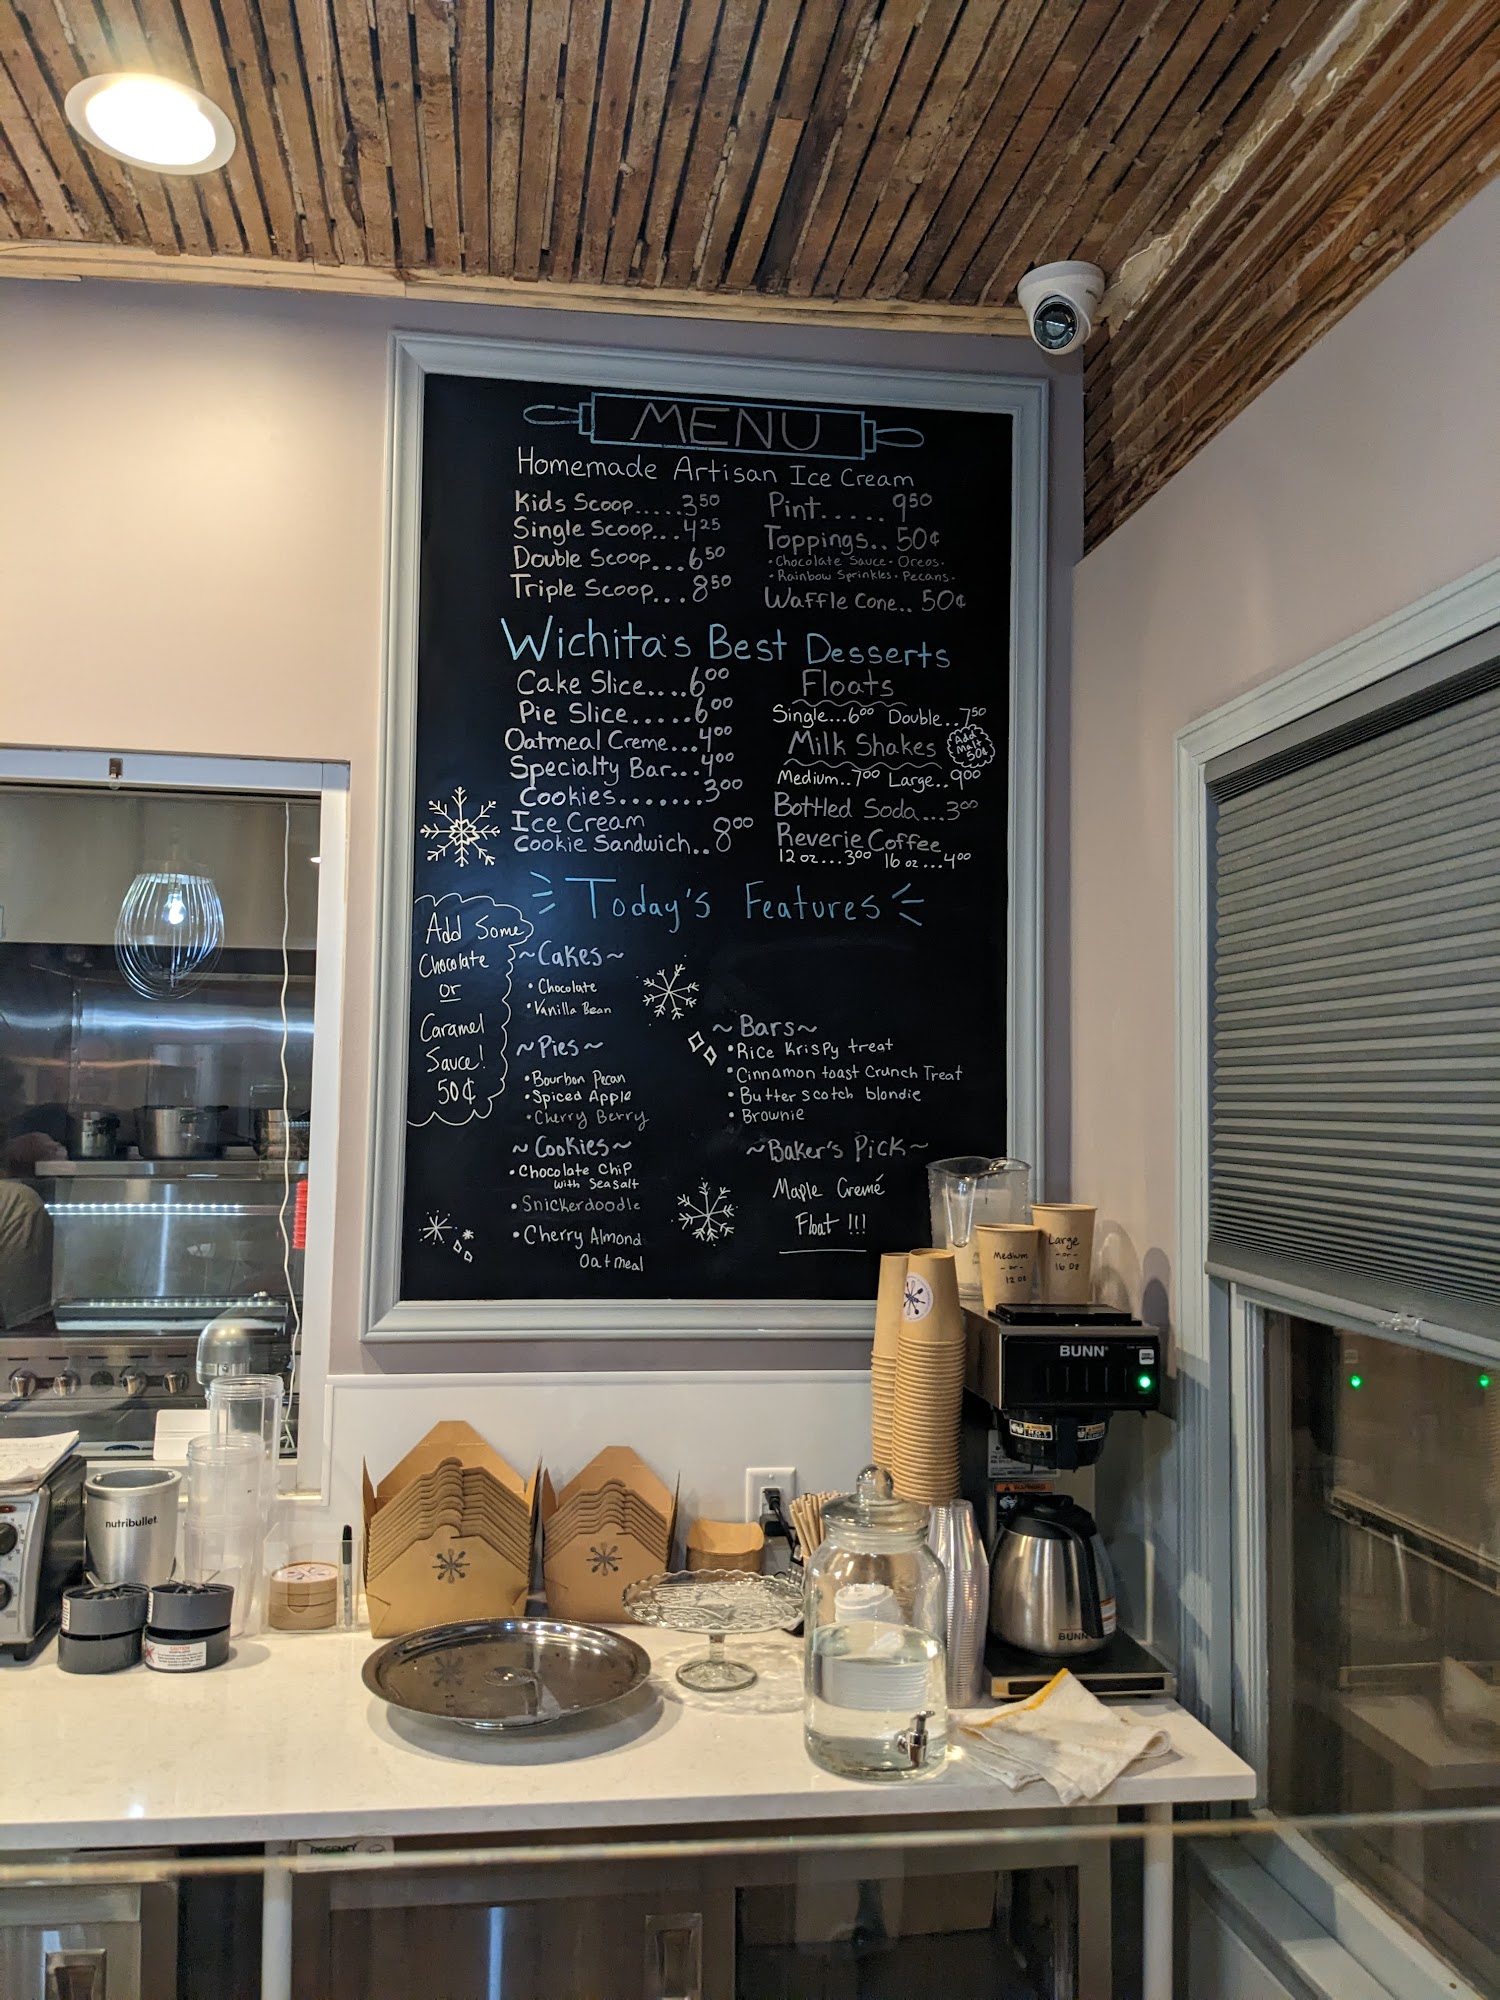 MENU
Homemade Artisan Ice Cream
Kids Scoop.....3⁵⁰
Single Scoop...4²⁵
Double Scoop...6⁵⁰
Triple Scoop...8⁵⁰
Pint..... 9⁵⁰
Toppings.. 50¢
• Chocolate Sauce • Oreos •
• Rainbow Sprinkles • Pecans •
Waffle Cone.. 50¢
Wichita's Best Desserts
Cake Slice....6⁰⁰
Pie Slice.....6⁰⁰
Oatmeal Creme...4⁰⁰
Specialty Bar...4⁰⁰
Cookies.......3⁰⁰
Ice Cream
Cookie Sandwich.. 8⁰⁰
Floats
Single...6⁰⁰ Double...7⁵⁰
Milk Shakes
Add
Malt
50¢
Medium..7⁰⁰ Large..9⁰⁰
Bottled Soda...3⁰⁰
Reverie Coffee
12 oz...3⁰⁰ 16 oz....4⁰⁰
Today's Features
Add Some
Chocolate
or
Caramel
Sauce!
50¢
~Cakes~
• Chocolate
• Vanilla Bean
~Pies~
• Bourbon Pecan
• Spiced Apple
• Cherry Berry
~Cookies~
• Chocolate Chip
with Seasalt
• Snickerdoodle
• Cherry Almond
Oatmeal
~Bars~
• Rice Krispy treat
• Cinnamon toast Crunch Treat
• Butterscotch blondie
• Brownie
~Baker's Pick~
Maple Cremé
Float !!!
Medium
- or -
12 oz
Large
- or -
16 oz
BUNN
nutribullet
CAUTION
WARNING
BUNN
REGENCY